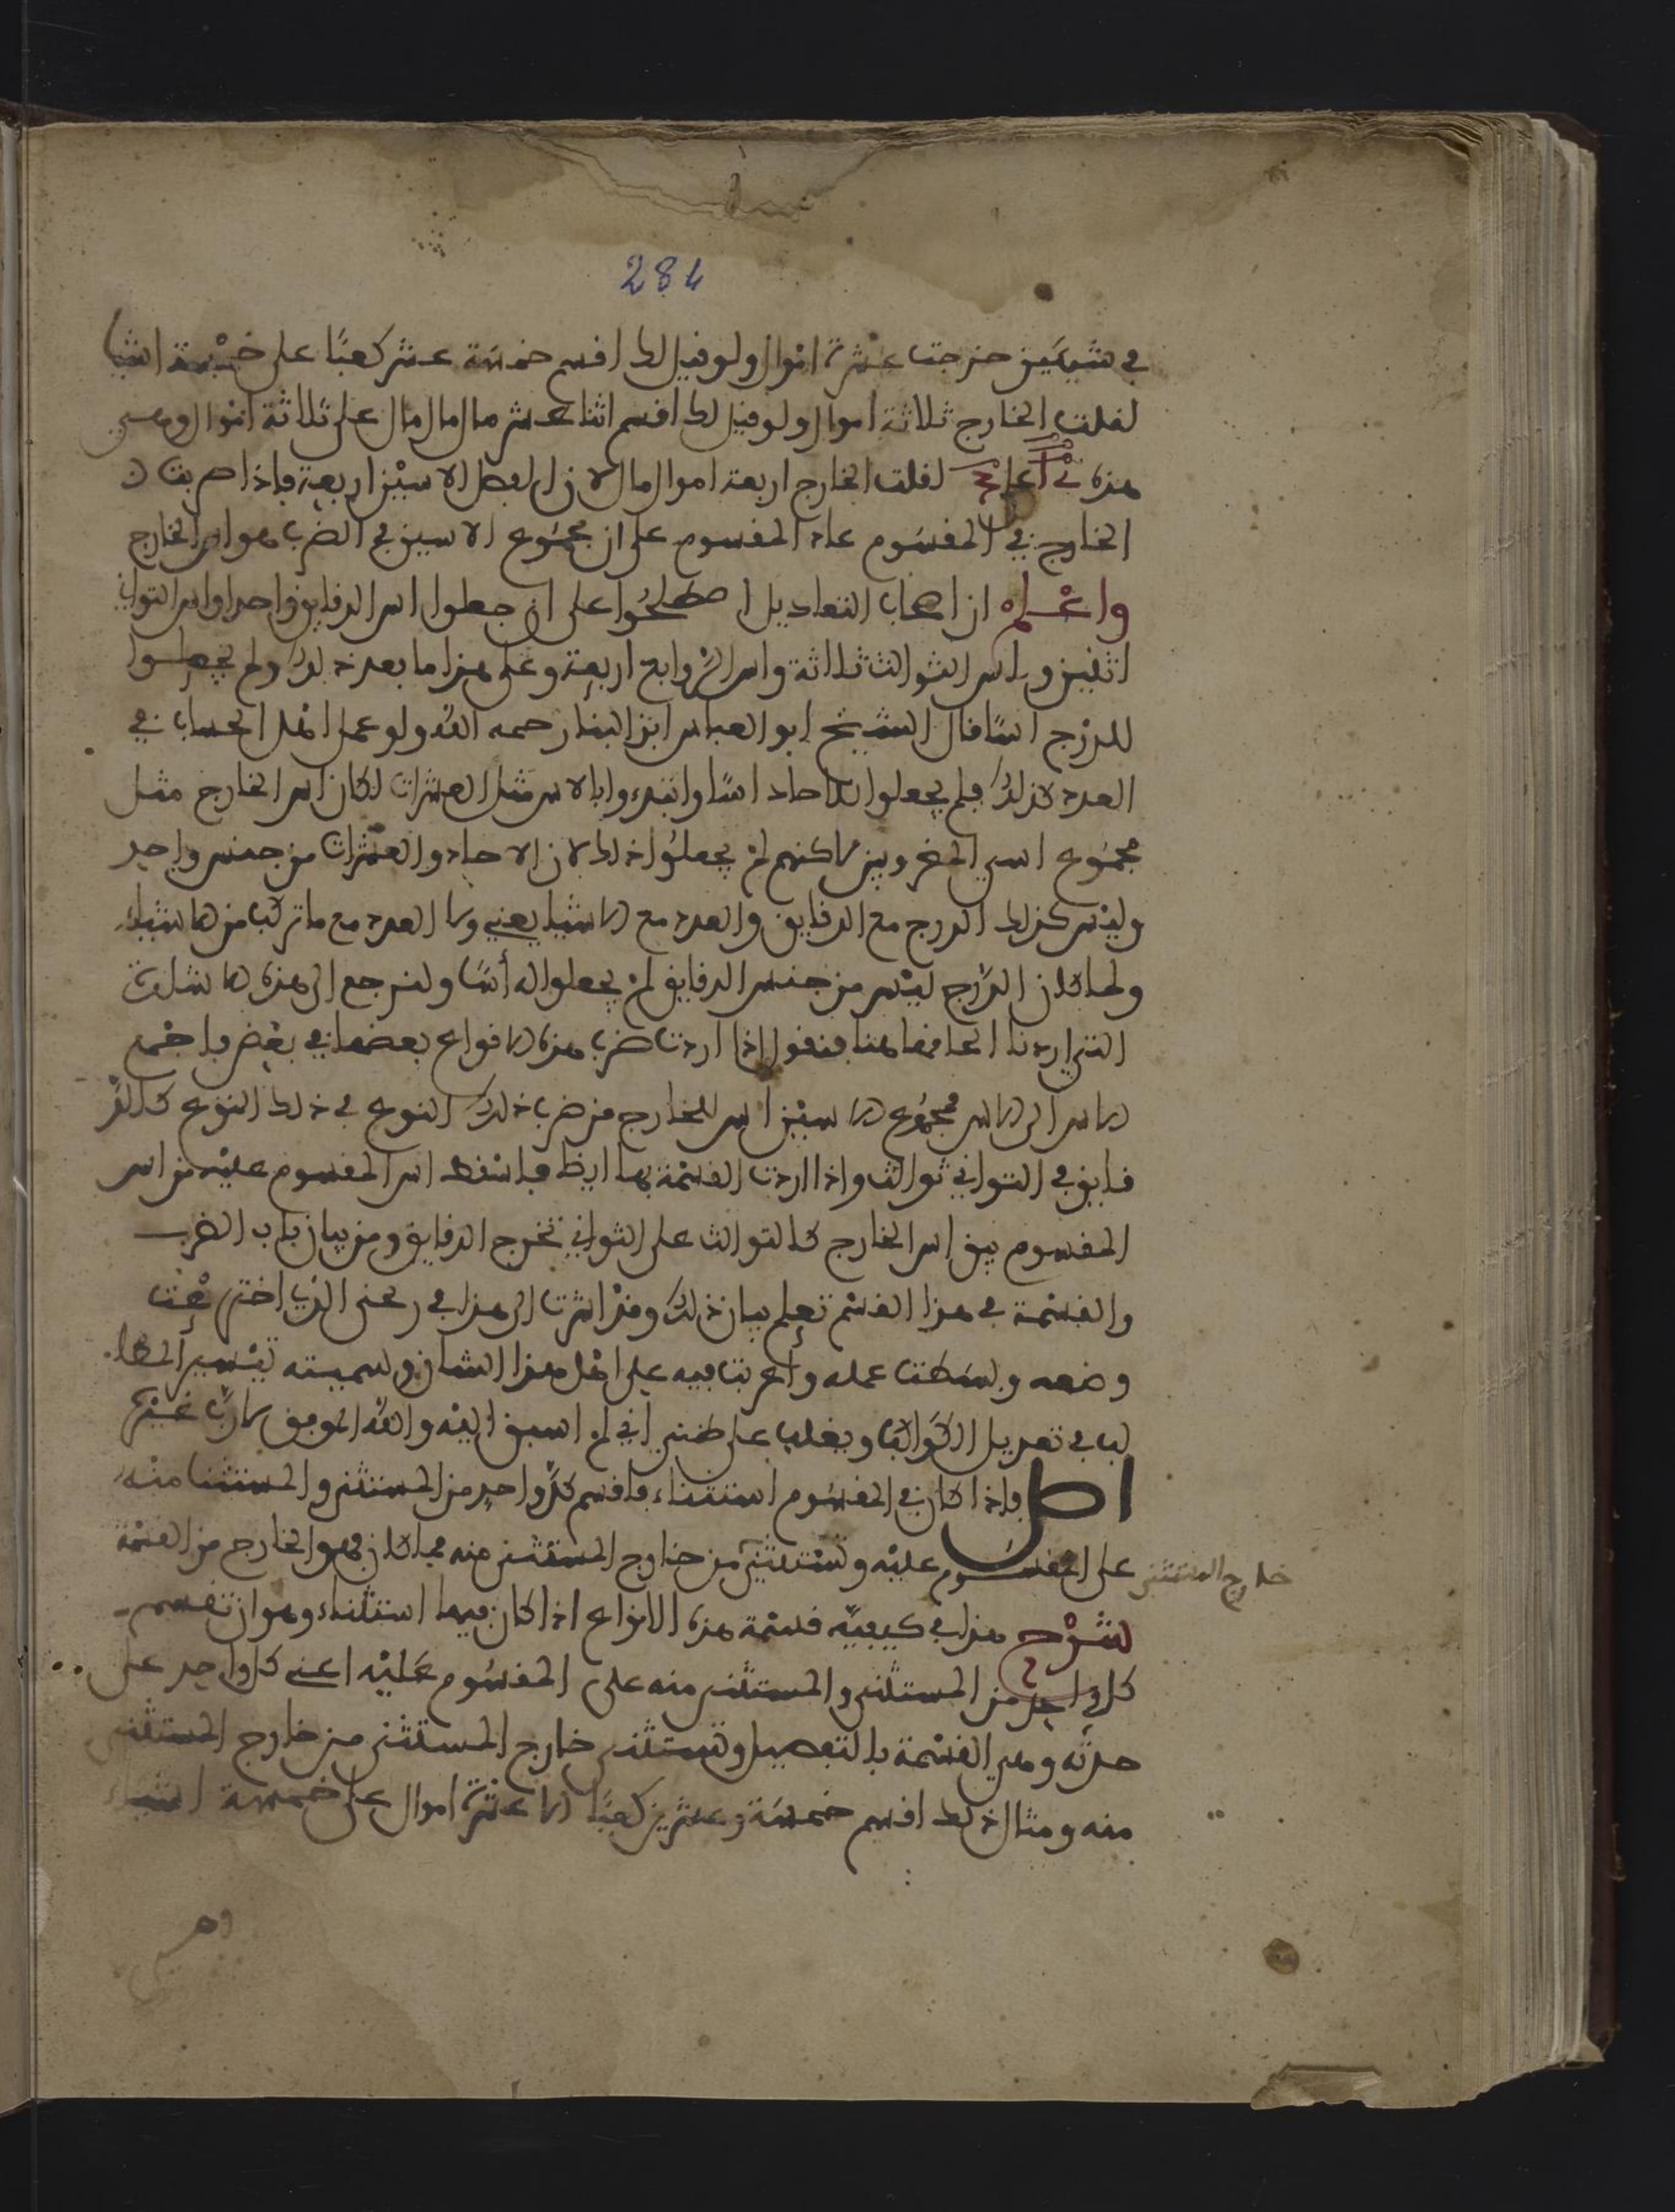 284
في شيئين خرجت عشرة اموال ولو قيل لك اقسم خمسة عشر كعبا على خمسة اشيا
لقلت الخارج ثلاثة اموال ولو قيل لك اقسم اثنا عشر مال مال مال على ثلاثة اموال وهي
هذه لقلت الخارج اربعة اموال مال لان فضل الاسين اربعة فاذا ضربت
الخارج في المقسوم عاد المقسوم على ان مجموع الاسين في الضرب هو اس الخارج
واعلم ان اصحاب التعاديل اصطلحوا على ان جعلوا اس الدقايق واحدا واس الثواني
اثنين واس الثوالث ثلاثة واس الروابع اربعة وعلى هذا ما بعد ذلك ولم يجعلوا
للدرج اسا قال الشيخ ابو العباس ابن البنا رحمه الله ولو عمل اهل الحساب في
العدد كذلك فلم يجعلوا للاحاد اسا وابتدءوا بالاس مثل العشرات لكان اس الخارج مثل
مجموع اسي المضروبين لاكنهم لم يجعلوا ذلك لان الاحاد والعشرات من جنس واحد
وليس كذلك الدرج مع الدقايق والعدد مع الاشيا يعني ولا العدد مع ما تركب من الاشياء
ولما كان الدرج ليس من جنس الدقايق لم يجعلوا له أسا ولنرجع الى هذه الامثلة
التي اردنا الحاقها هنا فنقول اذا اردت ضرب هذه الانواع بعضها في بعض فاجمع
الاس الى الاس مجموع الاسين اس للخارج من ضرب ذلك النوع في ذلك النوع كالد
قايق في الثواني ثوالث واذا اردت القسمة بها ايضا فاسقط اس المقسوم عليه من اس
المقسوم يبق اس الخارج كالثوالث على الثواني تخرج الدقايق ومن بيان باب الضرب
والقسمة في هذا القسم تعلم بيان ذلك وقد اشرت الى هذا في رجزي الذي اخترعت
وضعه وبسطت عمله واعربت فيه على اهل هذا الشان وسميته تيسير المطا
لب في تعديل الكواكب ويغلب على ظني اني لم اسبق اليه والله الموفق لا رب غيره
اصل فاذا كان في المقسوم استثناء فاقسم كل واحد من المستثنى والمستثنا منه
على المقسوم عليه وتستثني من خارج المستثنى منه فما كان فهو الخارج من القسمة
خارج المستثنى
شرح هذا في كيفية قسمة هذه الانواع اذا كان فيها استثناء وهو ان تقسم
كل واحد من المستثنى والمستثنى منه على المقسوم عليه اعني كل واحد على
حدته وهي القسمة بالتفصيل وتستثني خارج المستثنى من خارج المستثنى
منه ومثال ذلك اقسم خمسة وعشرين كعبا الا عشرة اموال على خمسة اشياء
وهي